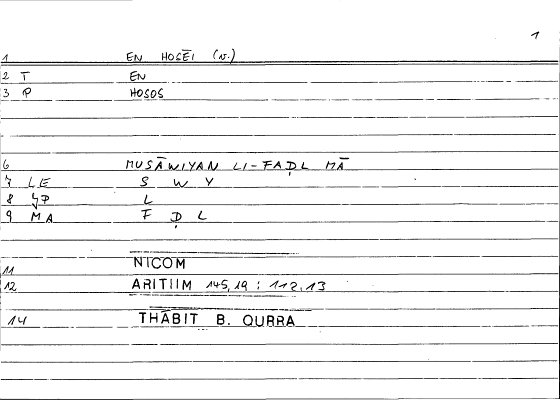 1
1 EN HOSĒI (N.)
2 T EN
3 P HOSOS
6 MUSĀWIYAN LI-FAḌL MĀ
7 LE S W Y
8 L
9 MA F Ḍ L
11 NICOM
12 ARITIIM 145,19 : 112,13
14 THĀBIT B. QURRA